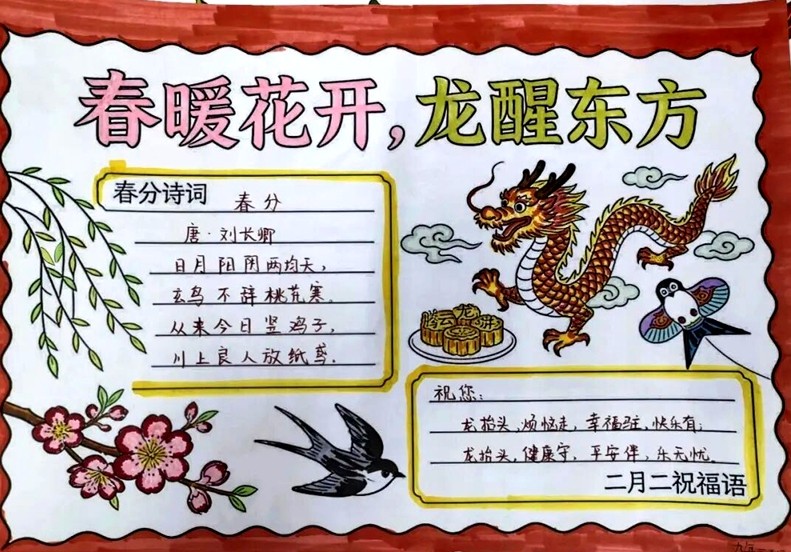 春暖花开,龙醒东方
春分诗词 春分
唐·刘长卿
日月阳阴两均天,
玄鸟不辞桃花寒。
从来今日竖鸡子,
川上良人放纸鸢.
祝您:
龙抬头,烦恼走,幸福驻,快乐有;
龙抬头,健康守,平安伴,乐无忧。
二月二祝福语